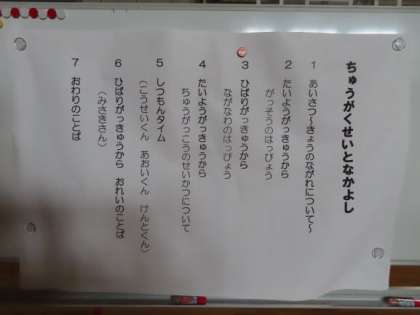 ちゅうがくせいとなかよし
1 あいさつ～きょうのながれについて～
2 たいようがっきゅうから
がっそうのはっぴょう
3 ひばりがっきゅうから
ながなわのはっぴょう
4 たいようがっきゅうから
ちゅうがっこうのせいかつについて
5 しつもんタイム
（こうせいくん あおいくん けんとくん）
6 ひばりがっきゅうから おれいのことば
（みさきさん）
7 おわりのことば